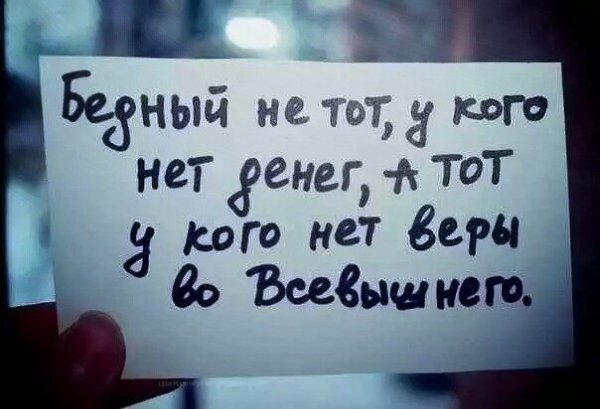 Бедный не тот, у кого
нет денег, а тот
у кого нет веры
во Всевышнего.